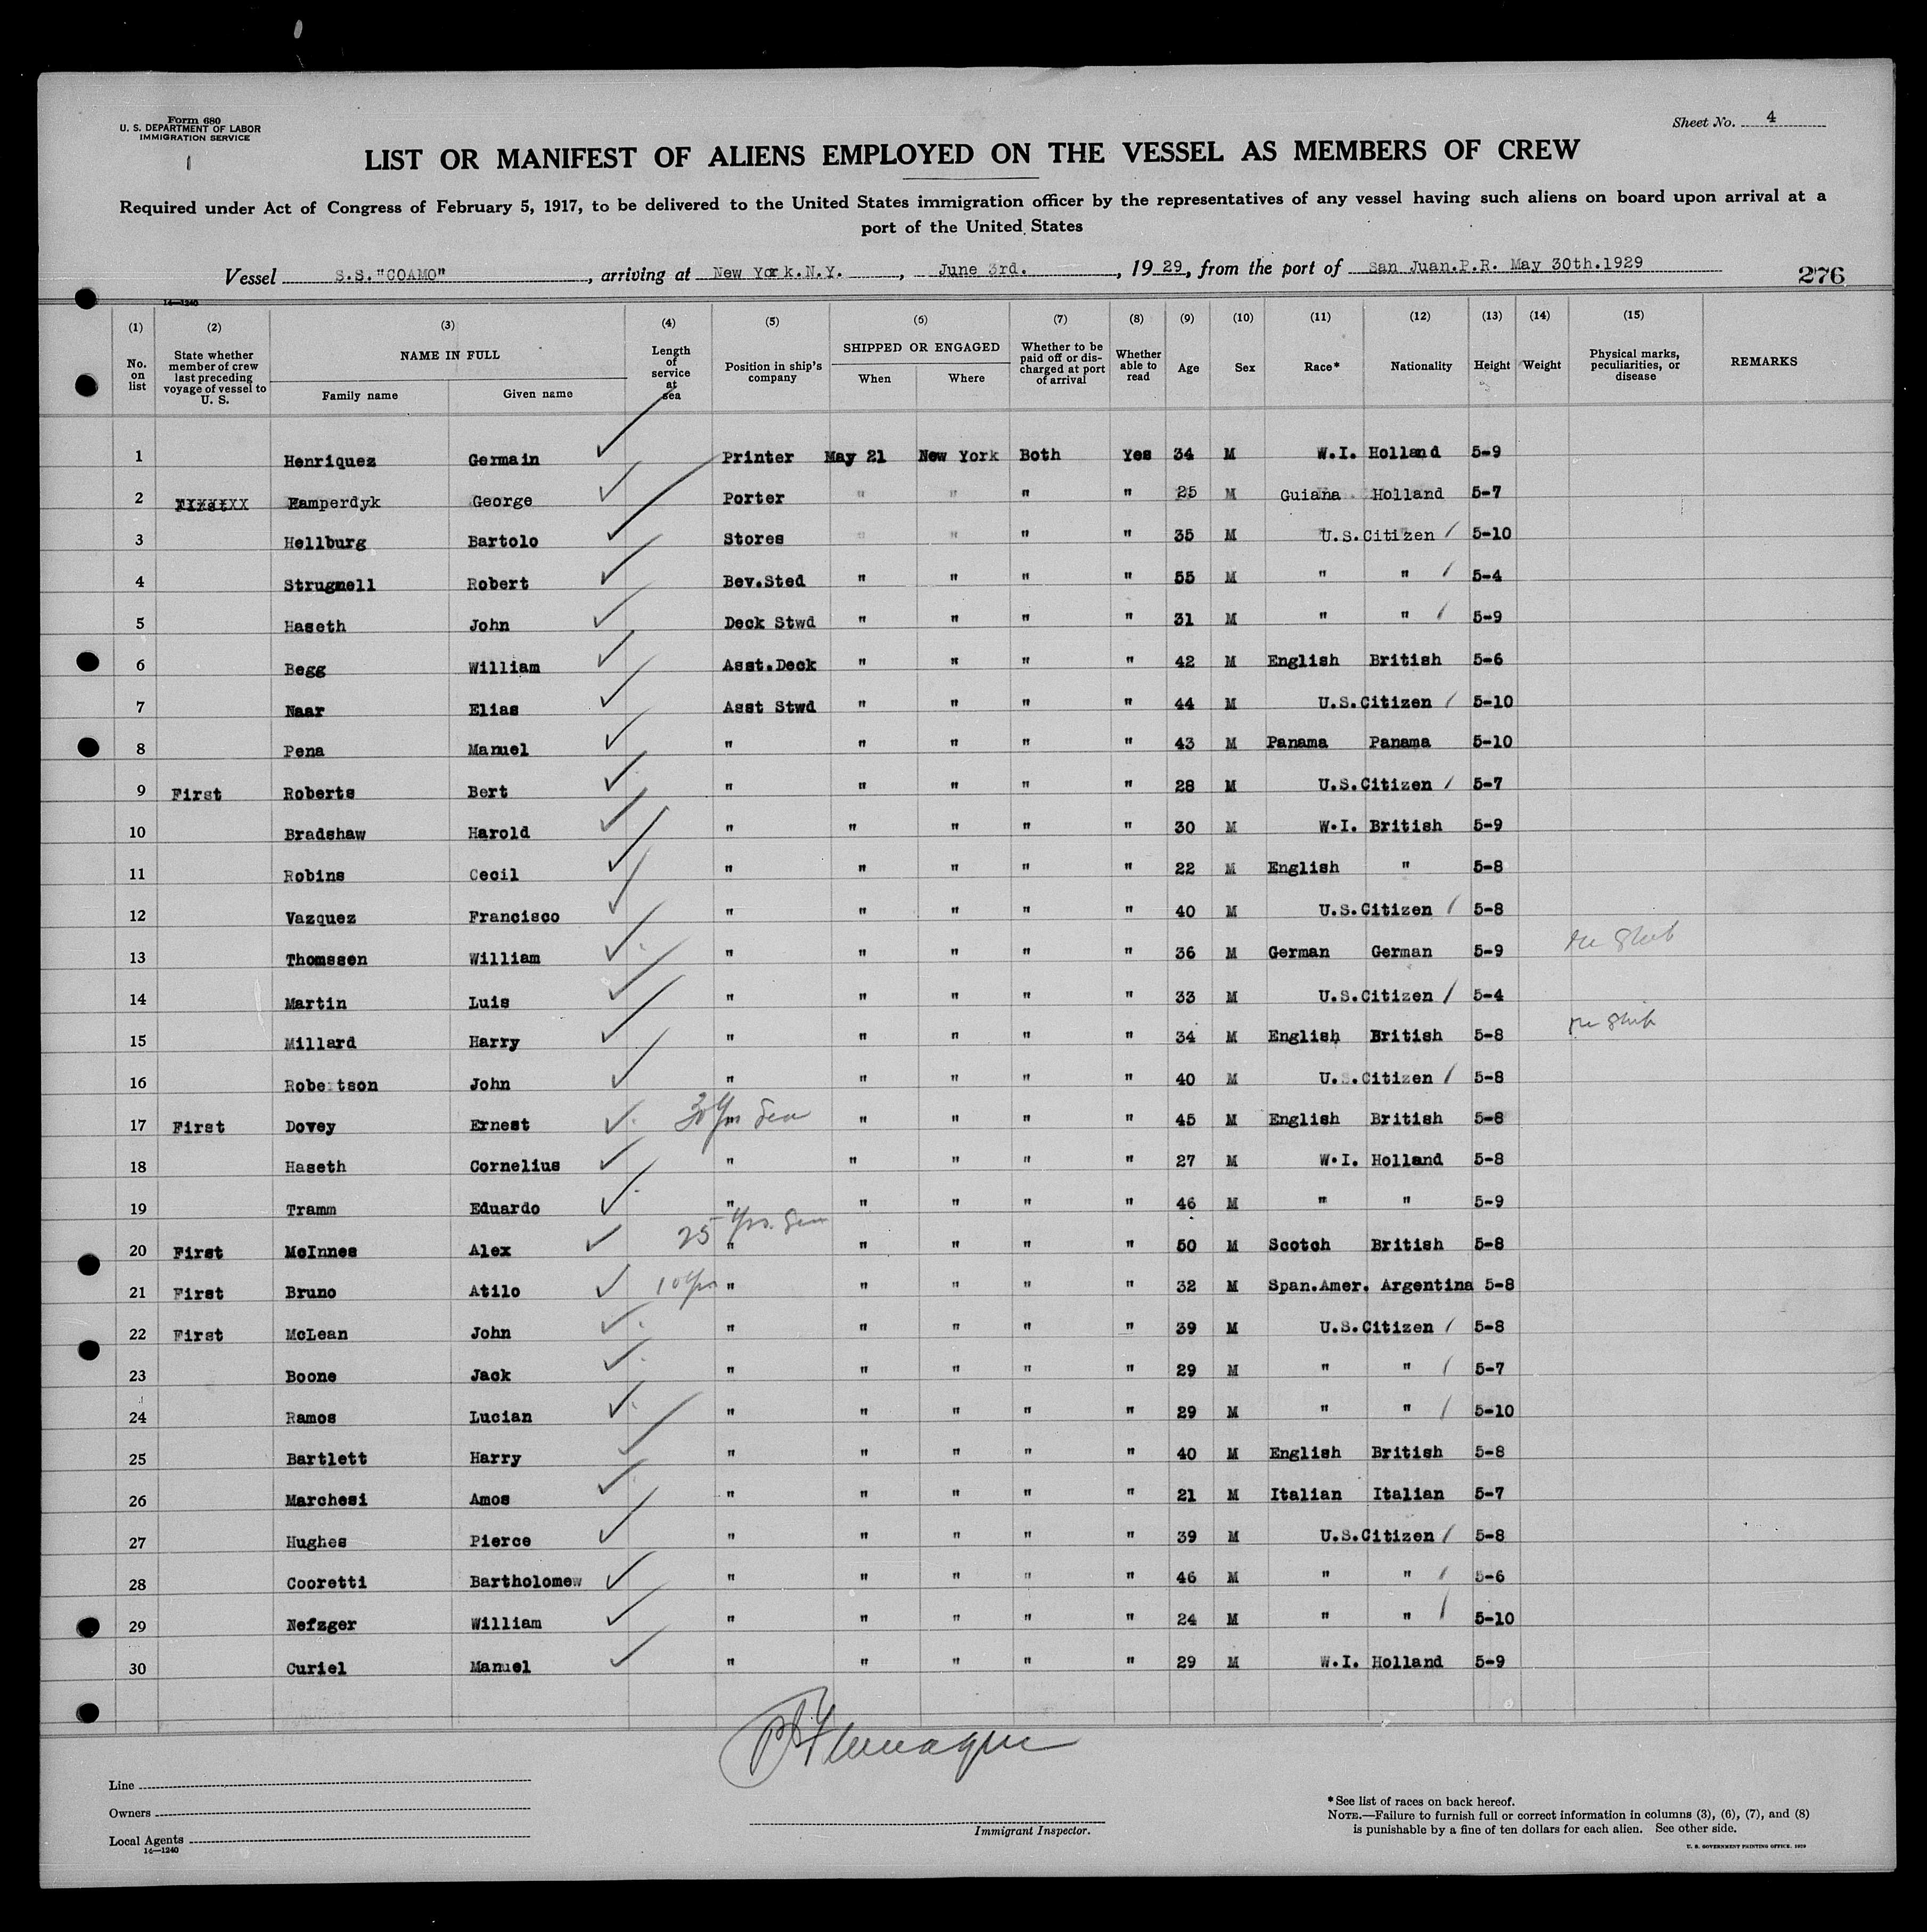 Form 680
U. S. DEPARTMENT OF LABOR
IMMIGRATION SERVICE
1
Sheet No. 4
LIST OR MANIFEST OF ALIENS EMPLOYED ON THE VESSEL AS MEMBERS OF CREW
Required under Act of Congress of February 5, 1917, to be delivered to the United States immigration officer by the representatives of any vessel having such aliens on board upon arrival at a
port of the United States
Vessel S.S."COAMO", arriving at New York.N.Y., June 3rd., 1929, from the port of San Juan.P.R. May 30th.1929
276
14—1240
(1) (2) (3) (4) (5) (6) (7) (8) (9) (10) (11) (12) (13) (14) (15)
No. on list State whether member of crew last preceding voyage of vessel to U. S. NAME IN FULL Family name Given name Length of service at sea Position in ship's company SHIPPED OR ENGAGED When Where Whether to be paid off or discharged at port of arrival Whether able to read Age Sex Race* Nationality Height Weight Physical marks, peculiarities, or disease REMARKS
1 Henriquez Germain Printer May 21 New York Both Yes 34 M W.I. Holland 5-9
2 George Porter " " " " 25 M Guiana Holland 5-7
3 Hellburg Bartolo Stores " " " " 35 M U.S.Citizen 5-10
4 Strugnell Robert Bev.Sted " " " " 55 M " " 5-4
5 Haseth John Deck Stwd " " " " 31 M " " 5-9
6 Begg William Asst.Deck " " " " 42 M English British 5-6
7 Naar Elias Asst Stwd " " " " 44 M U.S.Citizen 5-10
8 Pena Manuel " " " " " 43 M Panama Panama 5-10
9 First Roberts Bert " " " " " 28 M U.S.Citizen 5-7
10 Bradshaw Harold " " " " " 30 M W.I. British 5-9
11 Robins Cecil " " " " " 22 M English " 5-8
12 Vazquez Francisco " " " " " 40 M U.S.Citizen 5-8
13 Thomssen William " " " " " 36 M German German 5-9
14 Martin Luis " " " " " 33 M U.S.Citizen 5-4
15 Millard Harry " " " " " 34 M English British 5-8
16 Robertson John " " " " " 40 M U.S.Citizen 5-8
17 First Dovey Ernest 30 Yrs Sea " " " " 45 M English British 5-8
18 Haseth Cornelius " " " " " 27 M W.I. Holland 5-8
19 Tramm Eduardo " " " " " 46 M " " 5-9
20 First McInnes Alex 25 Yrs. Sea " " " " " 50 M Scotch British 5-8
21 First Bruno Atilo 10 Yrs " " " " " 32 M Span.Amer. Argentina 5-8
22 First McLean John " " " " " 39 M U.S.Citizen 5-8
23 Boone Jack " " " " " 29 M " " 5-7
24 Ramos Lucian " " " " " 29 M " " 5-10
25 Bartlett Harry " " " " " 40 M English British 5-8
26 Marchesi Amos " " " " " 21 M Italian Italian 5-7
27 Hughes Pierce " " " " " 39 M U.S.Citizen 5-8
28 Cooretti Bartholomew " " " " " 46 M " " 5-6
29 Nefzger William " " " " " 24 M " " 5-10
30 Curiel Manuel " " " " " 29 M W.I. Holland 5-9
Line
Owners
Local Agents
14—1240
Immigrant Inspector.
*See list of races on back hereof.
NOTE.—Failure to furnish full or correct information in columns (3), (6), (7), and (8)
is punishable by a fine of ten dollars for each alien. See other side.
U. S. GOVERNMENT PRINTING OFFICE. 1929